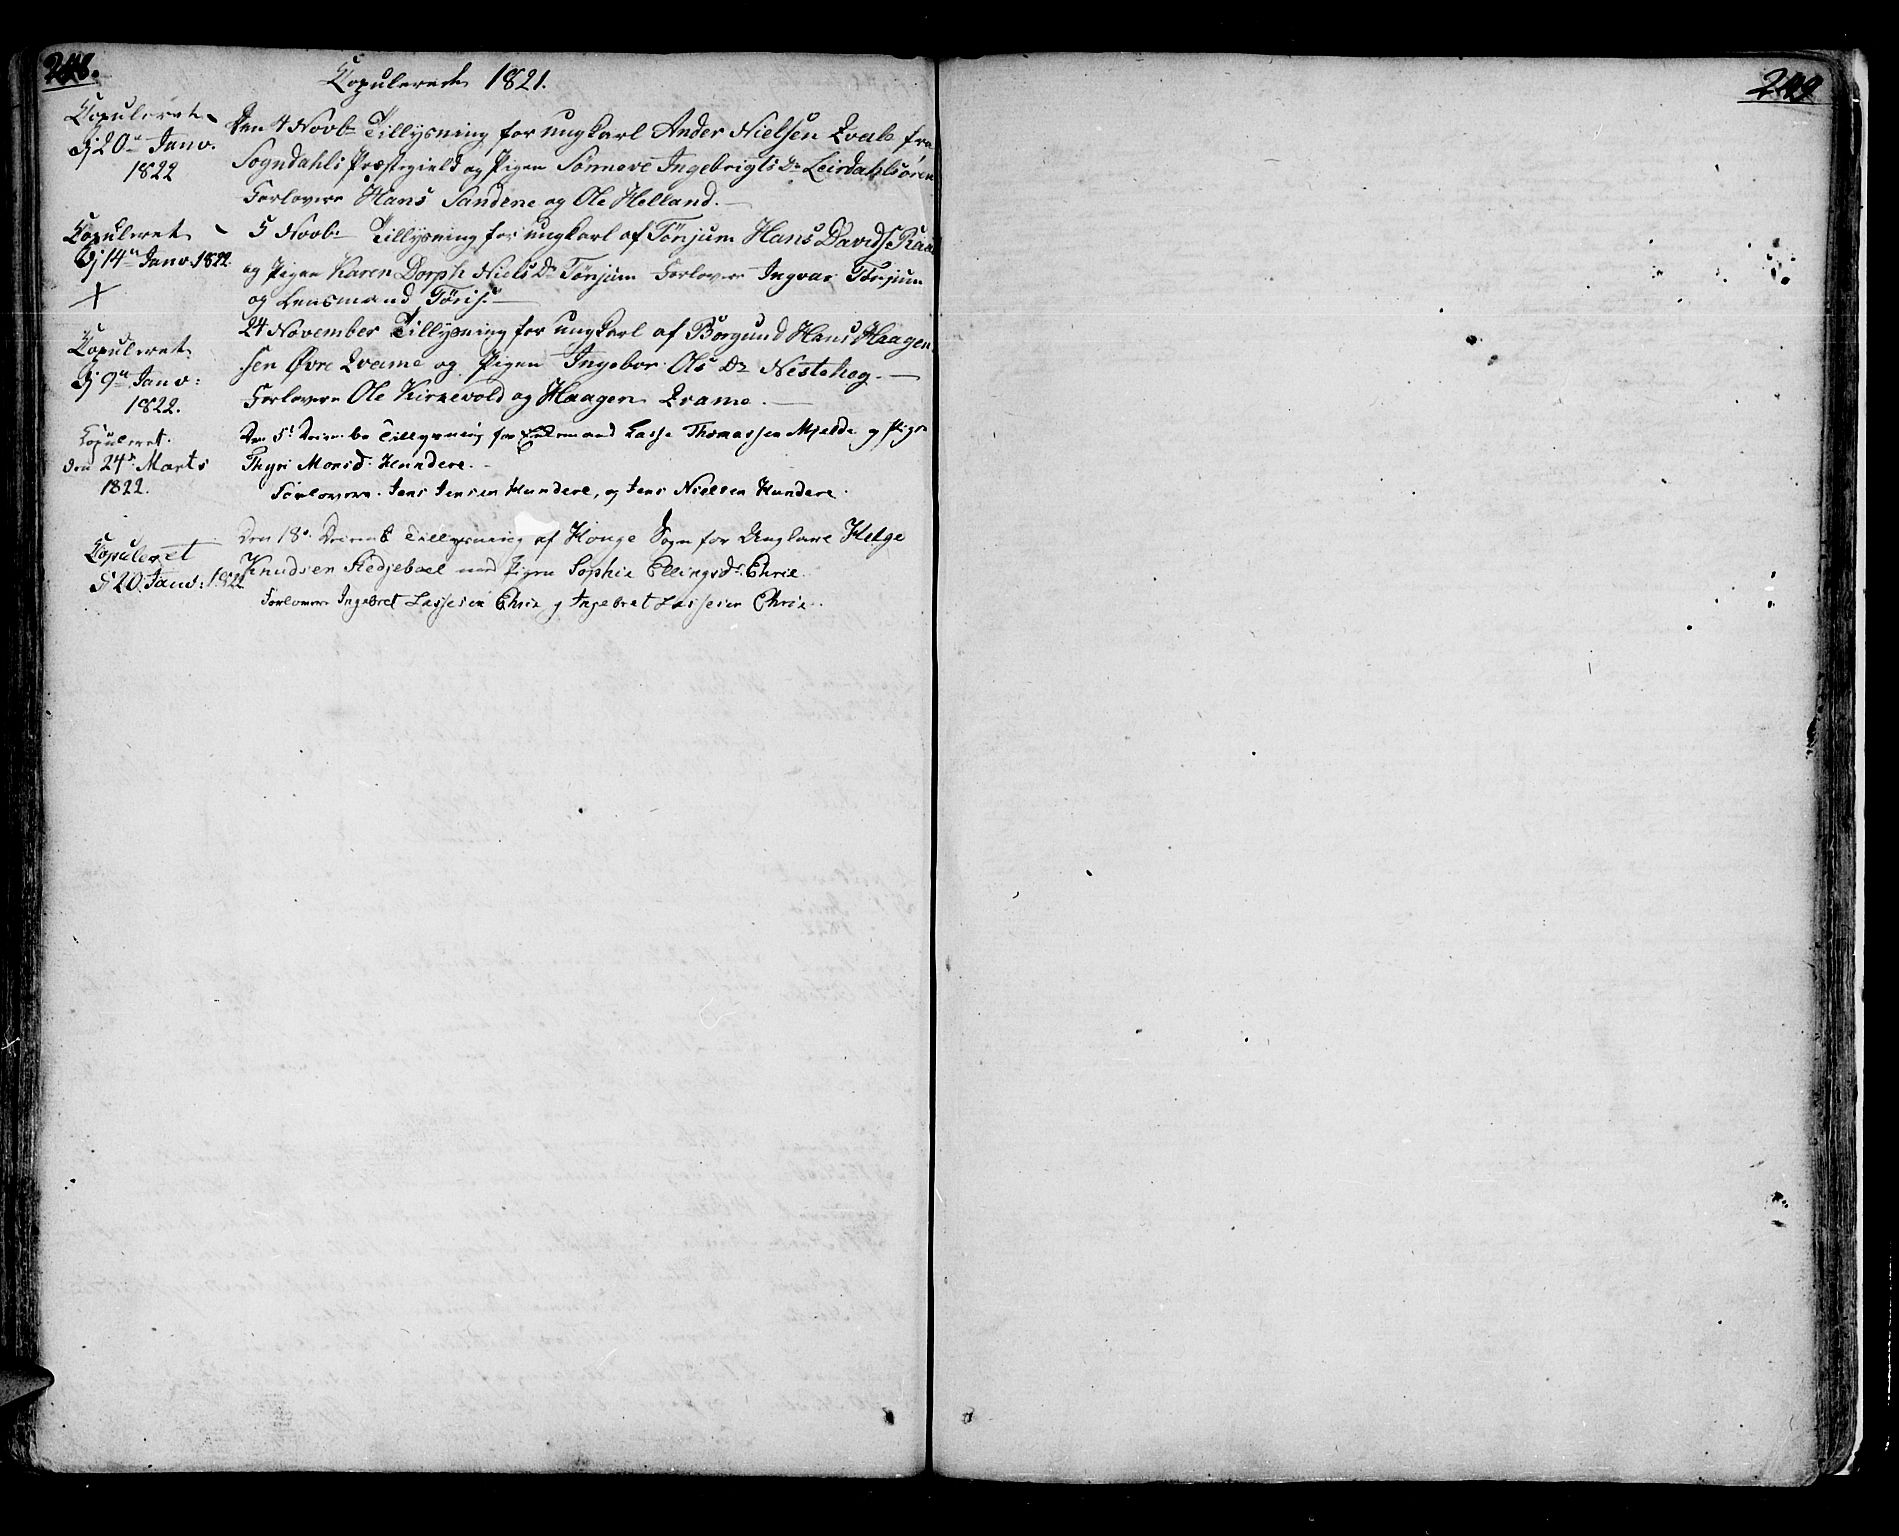 248.
Copulerede 1821.
Copuleret
Dj 20de Janv.
1822
Den 4 Novbr Tillysning for ungkarl Ander Nielsen Qvale fra
Sogndahls Præstegield og Pigen Sønneve Ingebrigts Dr Leirdahlsøren
Forlovere Hans Sandene og Ole Helland.
Copuleret
Dj 14de Janv. 1822.
+
5 Novbr Tillysning for ungkarl af Tønjum Hans Davids
og Pigen Karen Dorph Niels Dr Tønjum Forlovere Ingvar Tønjum
og Lensmand
Copuleret
Dj 9de Janv:
1822.
24 November Tillysning for ungkarl af Borgund Hans Haagen
sen Øvre Qvame og Pigen Ingebor Ols Dr Nestehog.
Forlovere Ole Kirkevold og Haagen Qvame.
Copuleret
den 24de Marts
1822.
Den 5t Decembr Tillysning for Enkemand Lasse Thomassen Mjelde og Pigen
Thyri Monsd. Hundere.
Forlovere Jens Jensen Hundere, og Jens Nielsen Hundere.
Copuleret
Dj 20 Janv: 1822
Den 18de Decemb Tillysning af Houge Sogn for Ungkarl Helge
Knudsen Stedjeboel med Pigen Sophie Ellingsdr Ehrie.
Forlovere Ingebret Lassesen Ehrie og Ingebret Lassesen Ehrie.
249